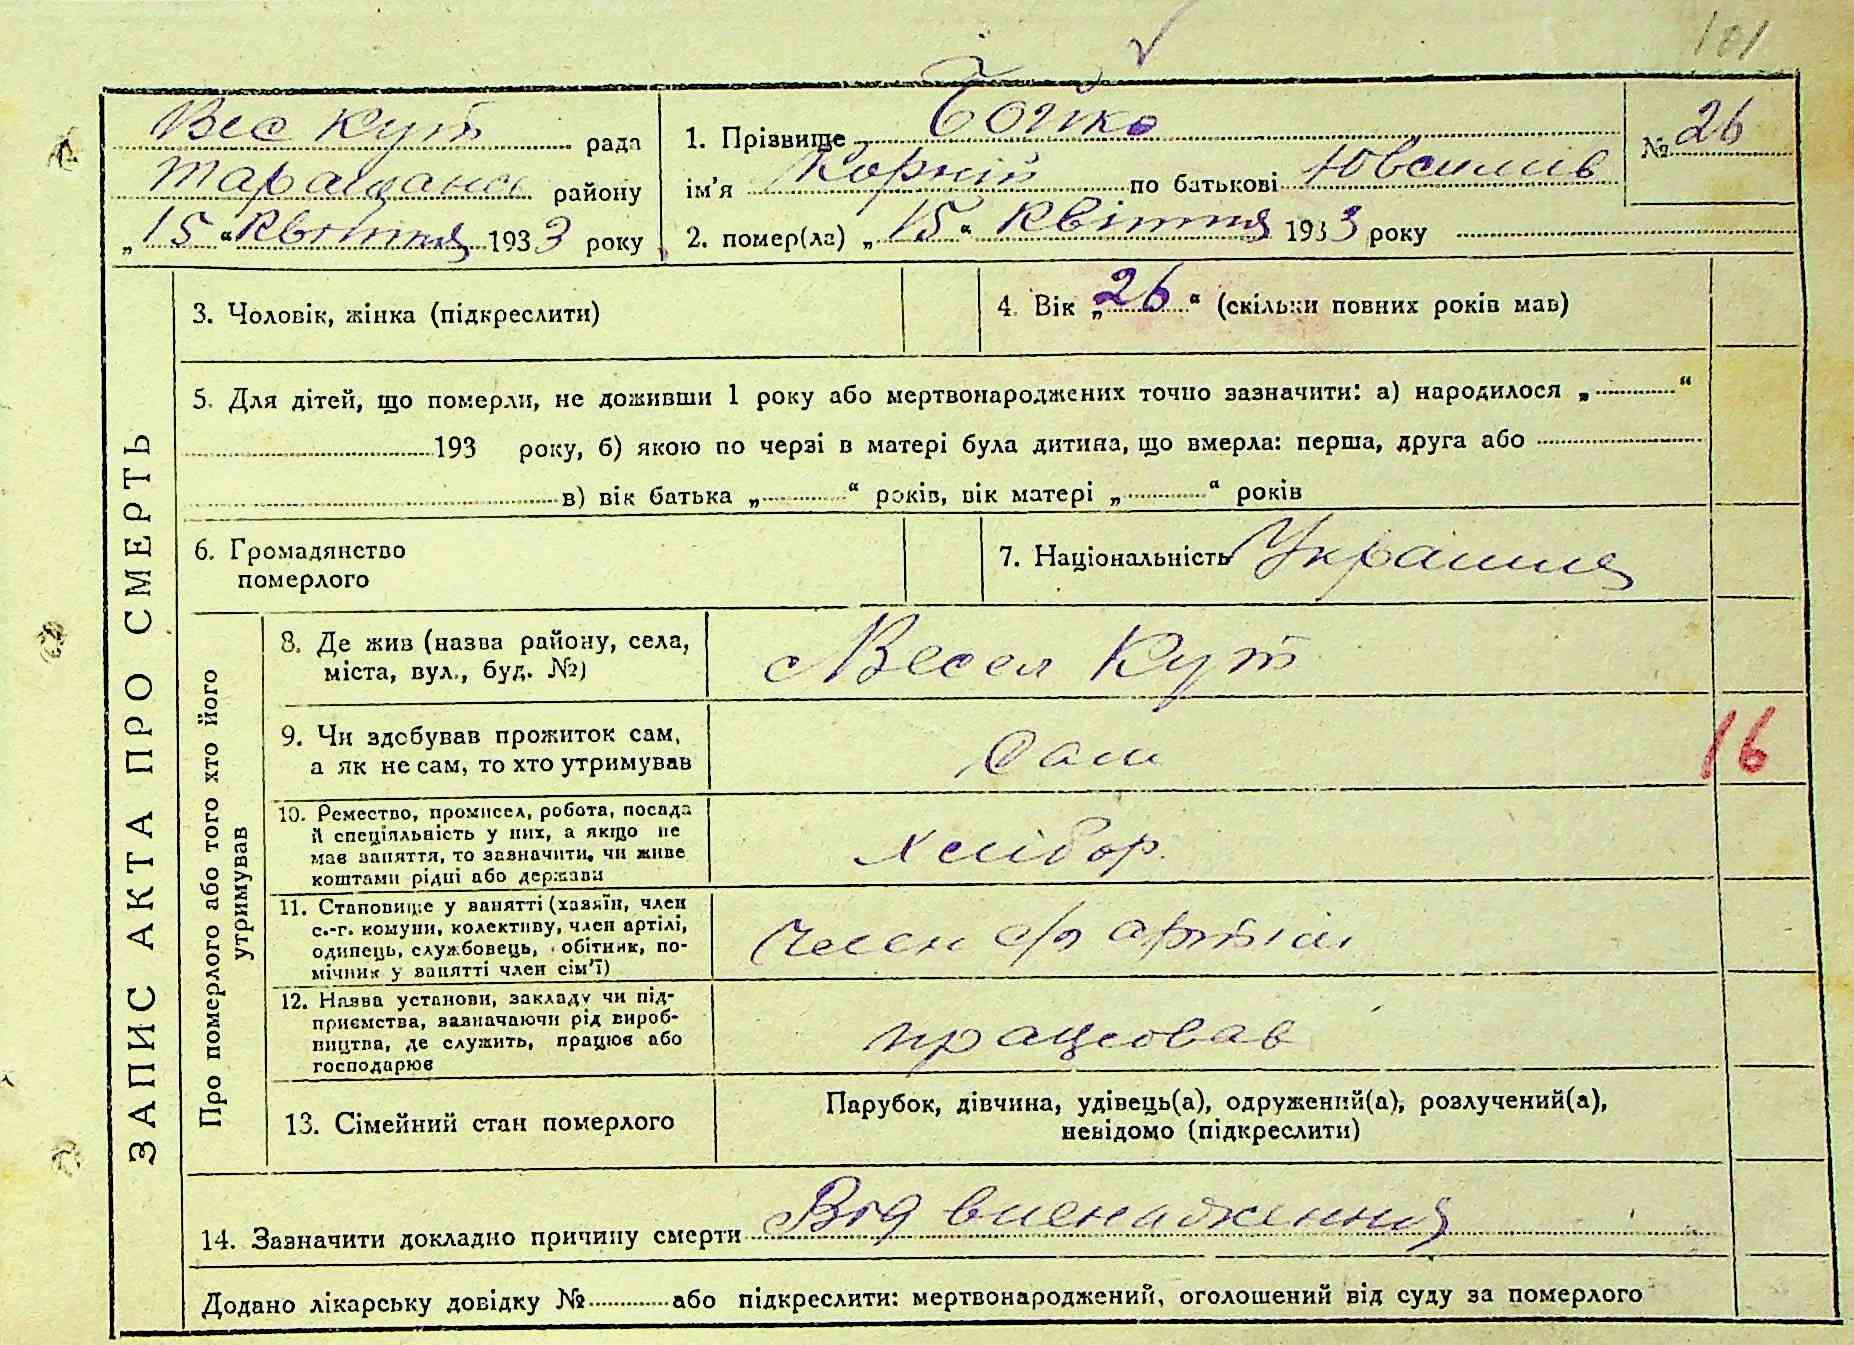 101
Вес Кут рада
Таращанс району
„15“ Квітня 1933 року
1. Прізвище Бойко
ім'я Корній по батькові
№ 26
2. помер(ла) „15“ Квітня 1933 року
ЗАПИС АКТА ПРО СМЕРТЬ
3. Чоловік, жінка (підкреслити)
4. Вік „26“ (скільки повних років мав)
5. Для дітей, що померли, не доживши 1 року або мертвонароджених точно зазначити: а) народилося „ “
193 року, б) якою по черзі в матері була дитина, що вмерла: перша, друга або
в) вік батька „ “ років, вік матері „ “ років
6. Громадянство
померлого
7. Національність
Про померлого або того хто його
утримував
8. Де жив (назва району, села,
міста, вул., буд. №)
с Весел Кут
9. Чи здобував прожиток сам,
а як не сам, то хто утримував
Сам
16
10. Ремество, промисел, робота, посада
й спеціяльність у них, а якщо не
має заняття, то зазначити, чи живе
коштами рідні або держави
хлібор.
11. Становище у занятті (хазяїн, член
с.-г. комуни, колективу, член артілі,
одинець, службовець, обітник, по-
мічник у занятті член сім'ї)
Член с/г артілі
12. Назва установи, закладу чи під-
приємства, зазначаючи рід вироб-
ництва, де служить, працює або
господарює
працював
13. Сімейний стан померлого
Парубок, дівчина, удівець(а), одружений(а), розлучений(а),
невідомо (підкреслити)
14. Зазначити докладно причину смерти Від виснаження
Додано лікарську довідку № або підкреслити: мертвонароджений, оголошений від суду за померлого